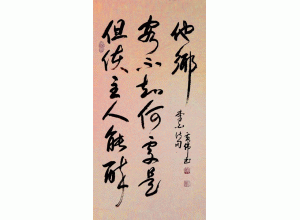 但使主人能醉
客不知何處是
他鄉
李白诗句